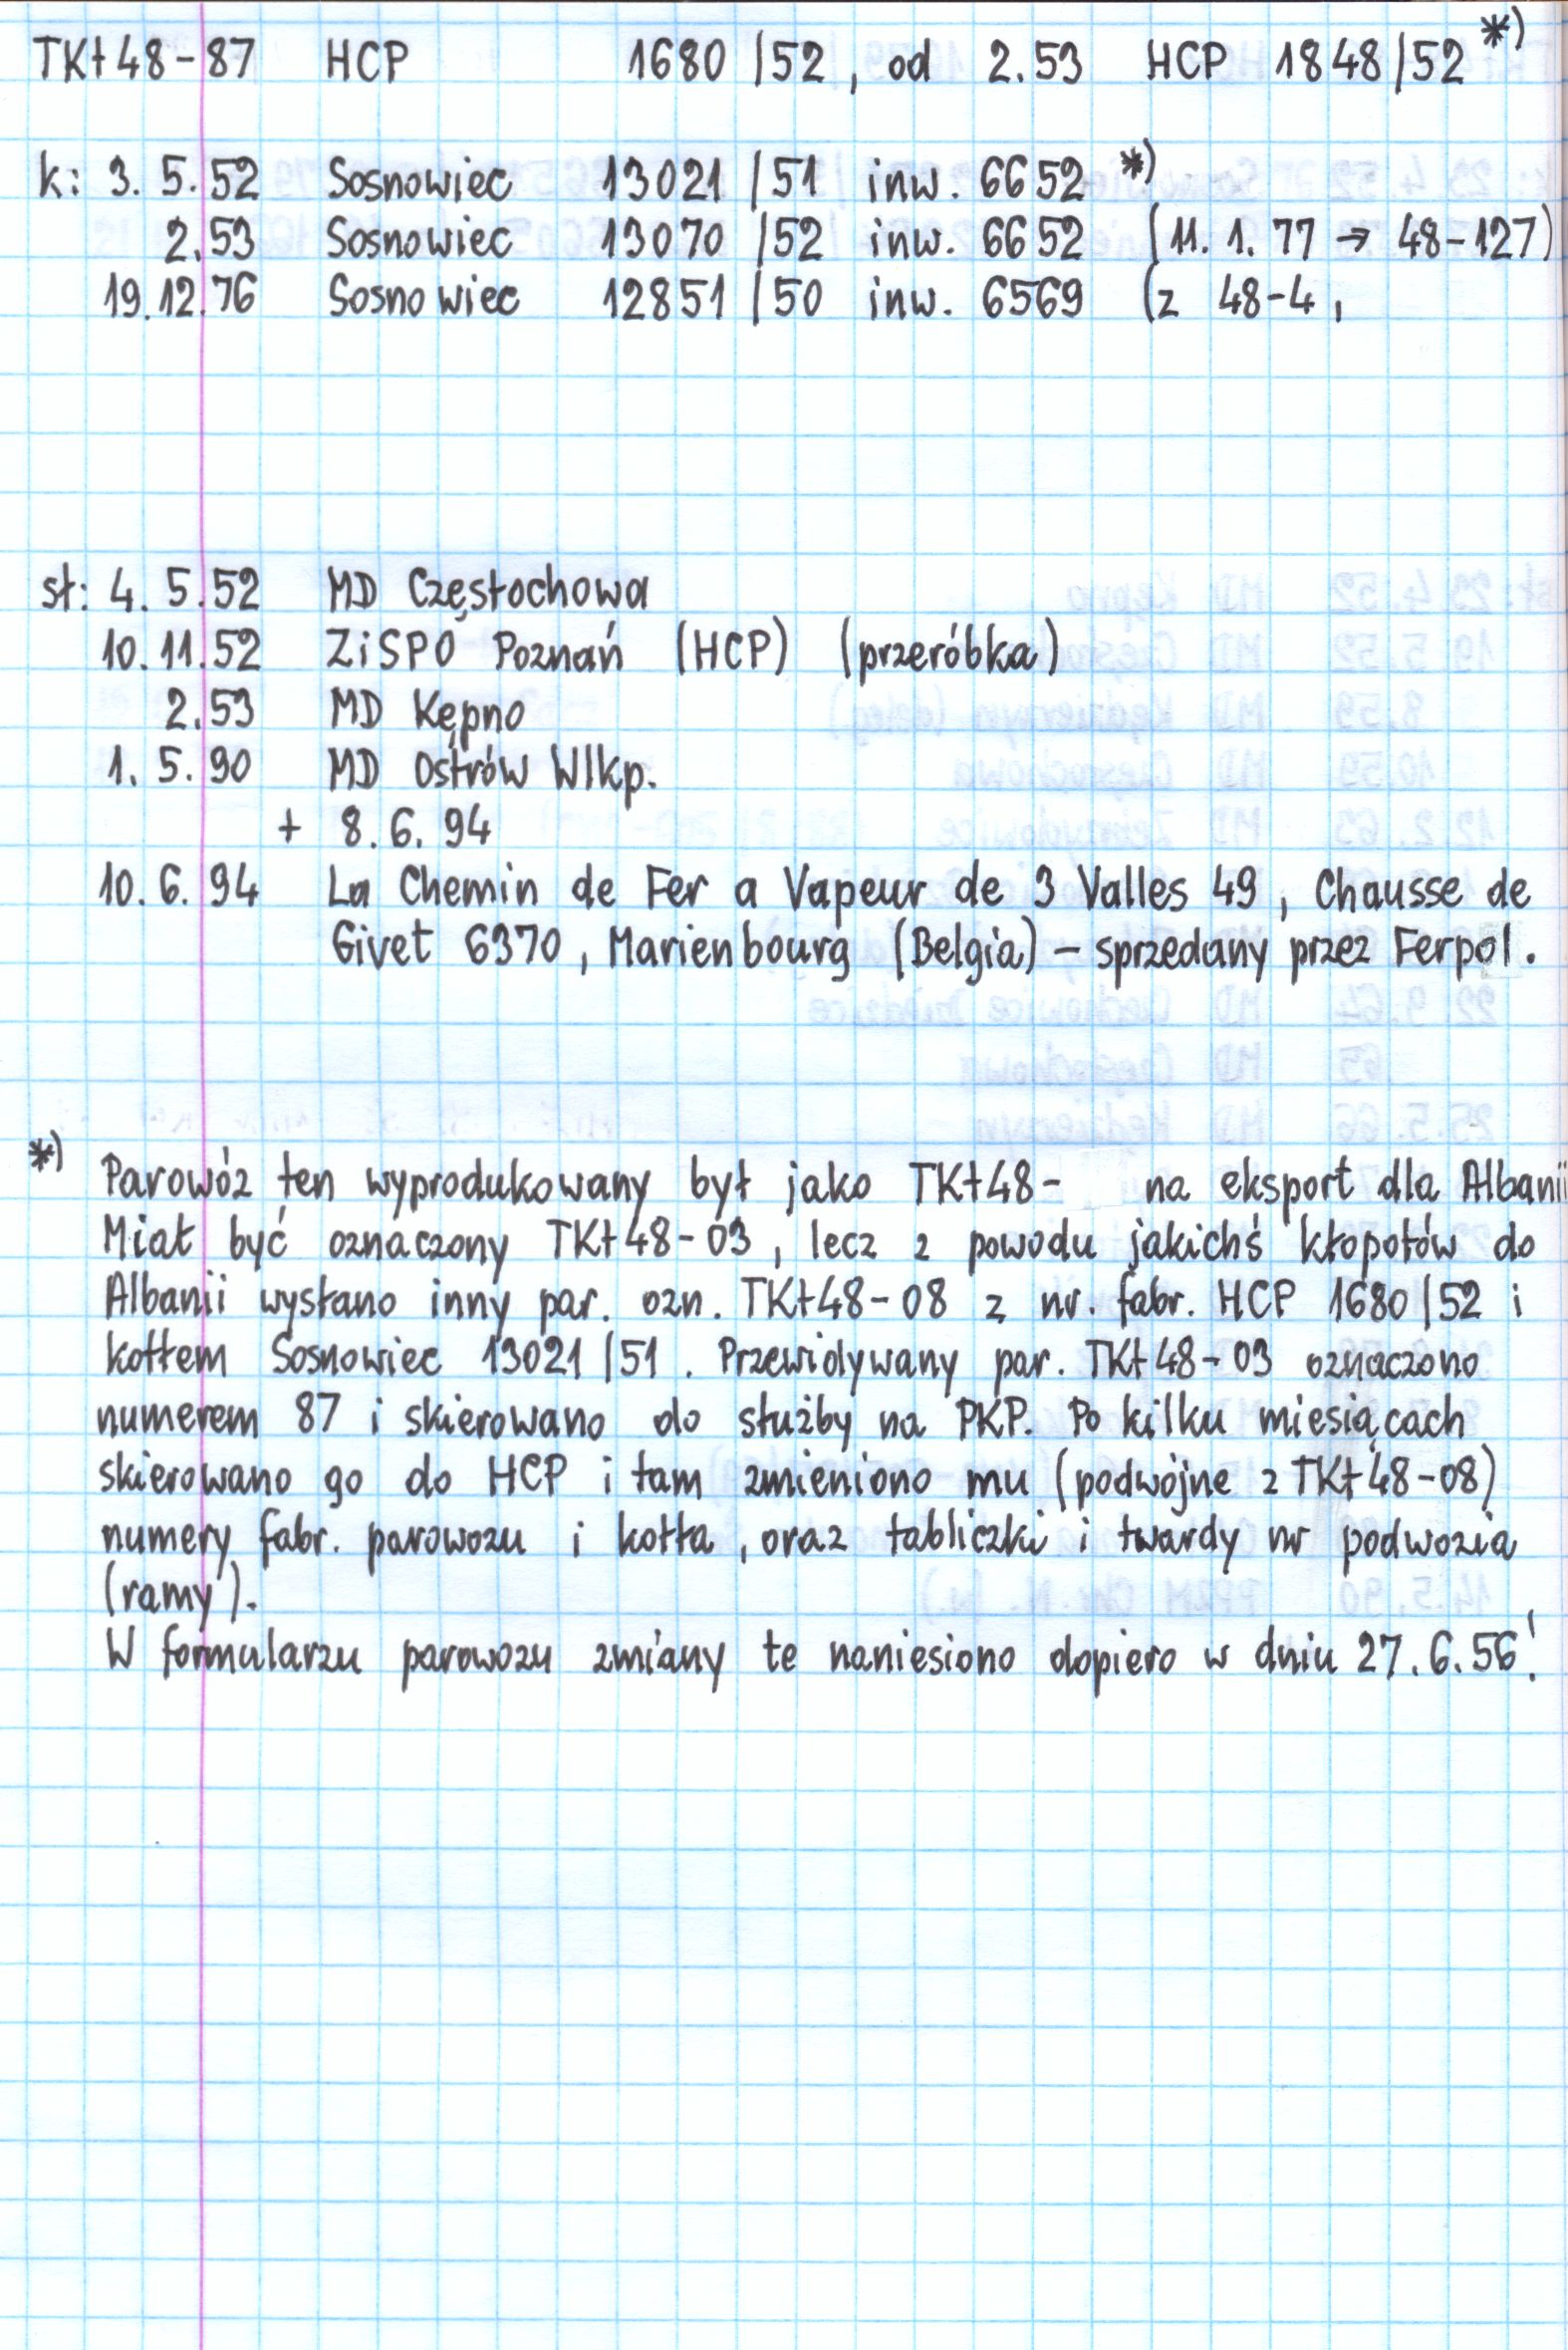 TKt48-87 HCP 1680/52, od 2.53 HCP 1848/52 *)
k: 3.5.52 Sosnowiec 13021/51 inw. 6652 *)
2.53 Sosnowiec 13070/52 inw. 6652 (11.1.77 → 48-127)
19.12.76 Sosnowiec 12851/50 inw. 6569 (z 48-4,
st: 4.5.52 MD Częstochowa
10.11.52 ZiSPO Poznań (HCP) (przeróbka)
2.53 MD Kępno
1.5.90 MD Ostrów Wlkp.
+ 8.6.94
10.6.94 La Chemin de Fer a Vapeur de 3 Valles 49, Chausse de
Givet 6370, Marienbourg (Belgia) – sprzedany przez Ferpol.
*) Parowóz ten wyprodukowany był jako TKt48- na eksport dla Albanii
Miał być oznaczony TKt48-03, lecz z powodu jakichś kłopotów do
Albanii wysłano inny par. ozn. TKt48-08 z nr. fabr. HCP 1680/52 i
kotłem Sosnowiec 13021/51. Przewidywany par. TKt48-03 oznaczono
numerem 87 i skierowano do służby na PKP. Po kilku miesiącach
skierowano go do HCP i tam zmieniono mu (podwójne z TKt48-08)
numery fabr. parowozu i kotła, oraz tabliczki i twardy nr podwozia
(ramy).
W formularzu parowozu zmiany te naniesiono dopiero w dniu 27.6.56!